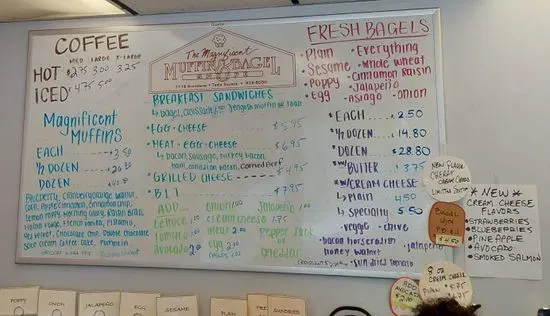 COFFEE
MED LARGE X-LARGE
HOT $2.75 3.00 3.25
ICED $4.75 5.00
Magnificent
Muffins
EACH $3.50
1/2 DOZEN
DOZEN
Blueberry, Cranberry Orange Walnut,
Corn, Apple Cinnamon, Cinnamon Chip,
Lemon Poppy, Morning Glory, Raisin Bran,
Red Velvet, Chocolate Chip, Double Chocolate
Sour Cream Coffee Cake, Pumpkin
The Magnificent
MUFFIN & BAGEL
SHOPPE
BREAKFAST SANDWICHES
bagel, croissant, english muffin or toast
EGG-CHEESE $5.95
MEAT-EGG-CHEESE $6.95
bacon, sausage, turkey bacon
ham, canadian bacon, corned beef
GRILLED CHEESE $4.95
BLT $7.95
ADD
onion 1.00
jalapeño 1.00
lettuce
cream cheese
Tomato
meat
pepper jack
avocado 2.00
egg
or
cheddar
FRESH BAGELS
Plain
Everything
Sesame
Whole Wheat
Poppy
Cinnamon Raisin
Egg
Jalapeño
Asiago
Onion
EACH $2.50
1/2 DOZEN $14.80
DOZEN $28.80
W/ BUTTER $3.75
W/ CREAM CHEESE
Plain 4.50
Specialty 5.50
veggie
chive
bacon horseradish
jalapeño
honey walnut
sun dried tomato
NEW FLAVOR
CHERRY
CREAM CHEESE
BAGEL
$4.50
NEW
CREAM CHEESE
FLAVORS
STRAWBERRIES
BLUEBERRIES
PINEAPPLE
AVOCADO
SMOKED SALMON
8 OZ
CREAM CHEESE
PLAIN
ADD
AVOCADO
POPPY
ONION
JALAPEÑO
EGG
SESAME
PLAIN